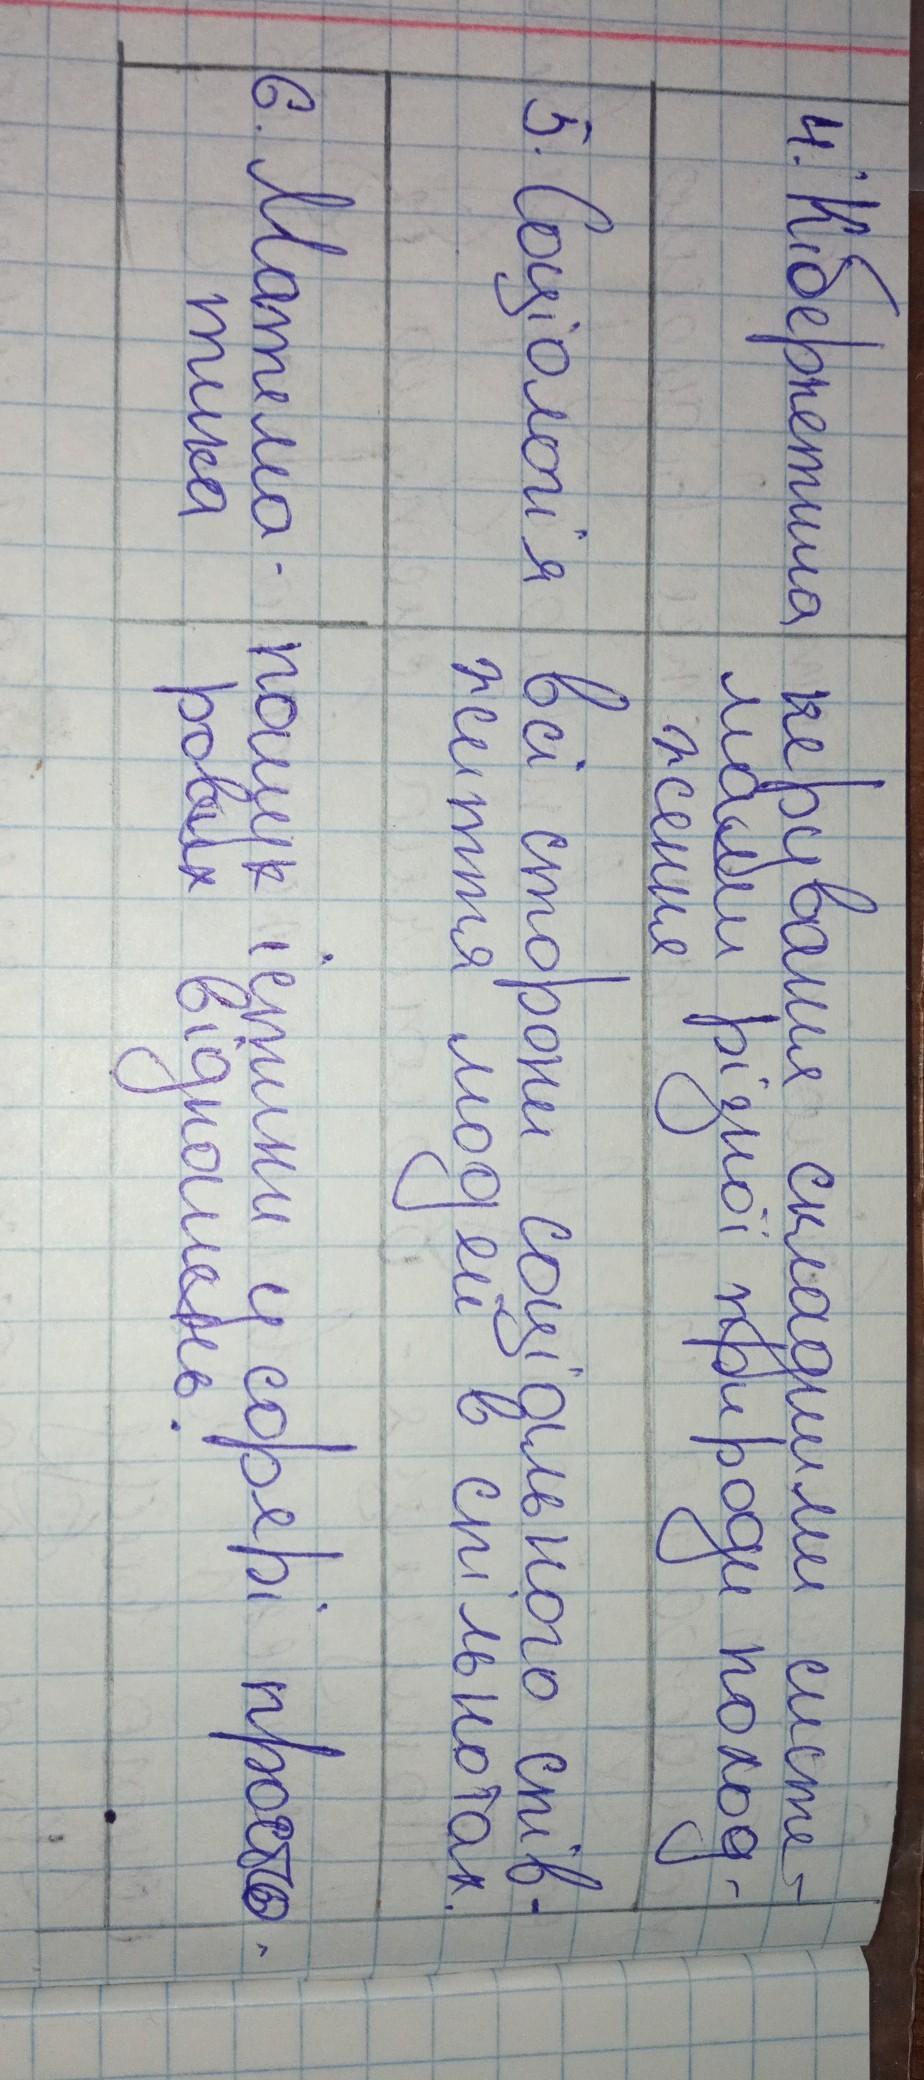 4. Кібернетика
керування складними систе-
мами різної природи поход-
ження
5. Соціологія
всі сторони соціального спів-
життя людей в спільнотах.
6. Матема-
тика
пошук істини у сфері просто-
рових відношень.